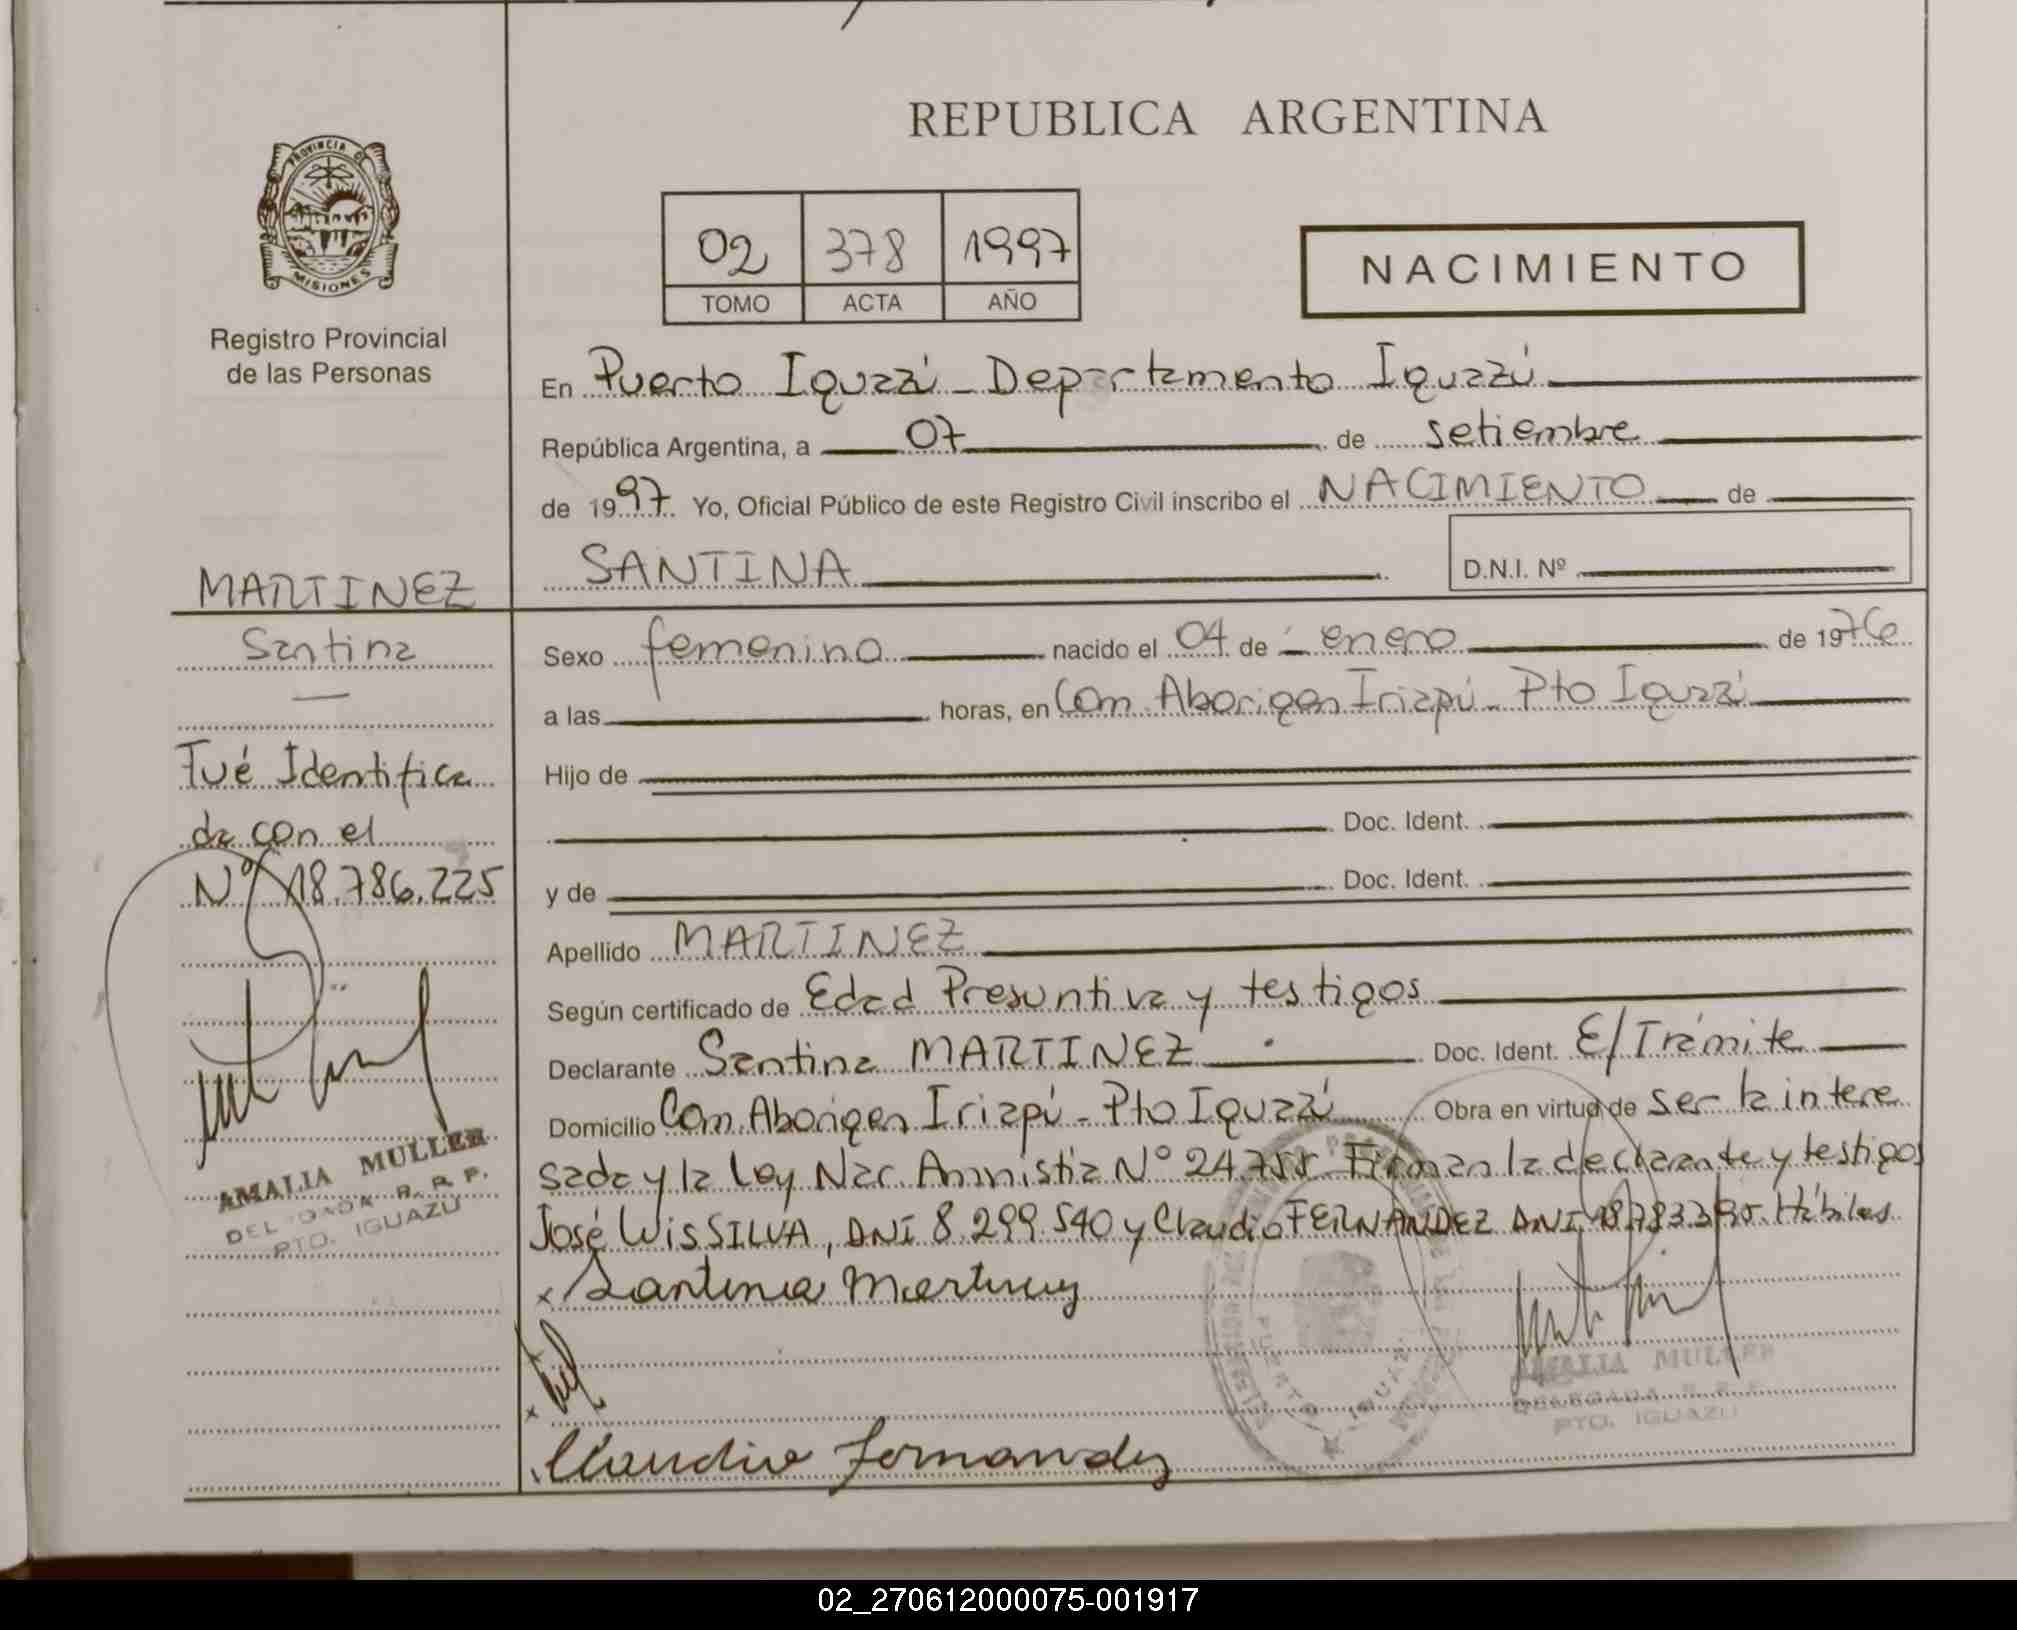 REPUBLICA ARGENTINA
PROVINCIA DE
MISIONES
Registro Provincial
de las Personas
02 378 1997
TOMO ACTA AÑO
NACIMIENTO
En Puerto Iguazú - Departamento Iguazú
República Argentina, a 07 de setiembre
de 1997. Yo, Oficial Público de este Registro Civil inscribo el NACIMIENTO de
SANTINA D.N.I. Nº
MARTINEZ
Santina
Fué Identifica
da con el
Nº 18.786.225
AMALIA MULLER
R. R. P.
PTO. IGUAZU
Sexo femenino nacido el 04 de enero de 1976
a las horas, en Com Aborigen Iriapú - Pto Iguazú
Hijo de
Doc. Ident.
y de Doc. Ident.
Apellido MARTINEZ
Según certificado de Edad Presuntiva y testigos
Declarante Santina MARTINEZ Doc. Ident. E/Trámite
Domicilio Com Aborigen Iriapú - Pto Iguazú Obra en virtud de ser la intere
sada y la Ley Nac Amnistia Nº 24.755. Firman la declarante y testigos
José Luis SILVA, DNI 8.299.540 y Claudio FERNANDEZ DNI Hábiles
x Santina Martinez
x
Claudio Fernandez
IGUAZU
AMALIA MULLER
DELEGADA R. R. P.
PTO. IGUAZU
02_270612000075-001917